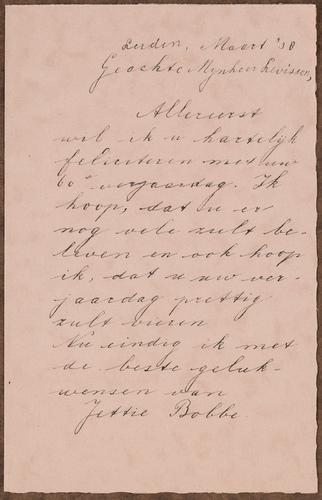 Leiden, Maart '38
Geachte Mynheer Levisson,
Allereerst
wil ik u hartelijk
feliciteren met uw
60e verjaardag. Ik
hoop, dat u er
nog vele zult be-
leven en ook hoop
ik, dat u uw ver-
jaardag prettig
zult vieren
Nu eindig ik met
de beste geluk-
wensen van
Jettie Bobbe.